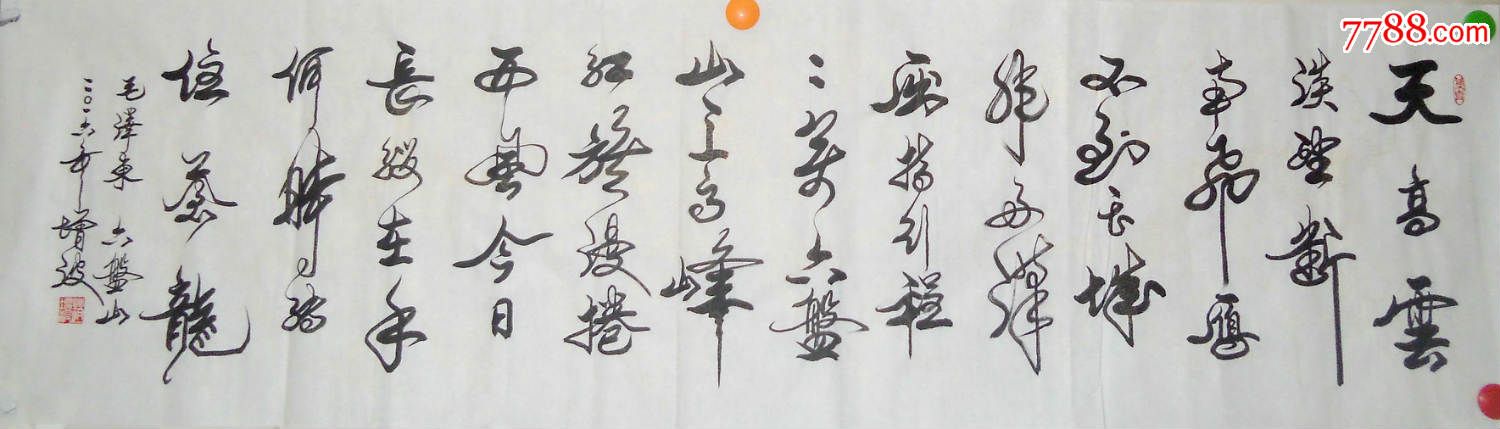 天高雲
淡望斷
南飛雁
不到長城
非好漢
屈指行程
二萬六盤
山上高峰
紅旗漫捲
西風今日
長纓在手
何時縛
住蒼龍
毛澤東 六盤山
二〇一六年 增波
7788.com